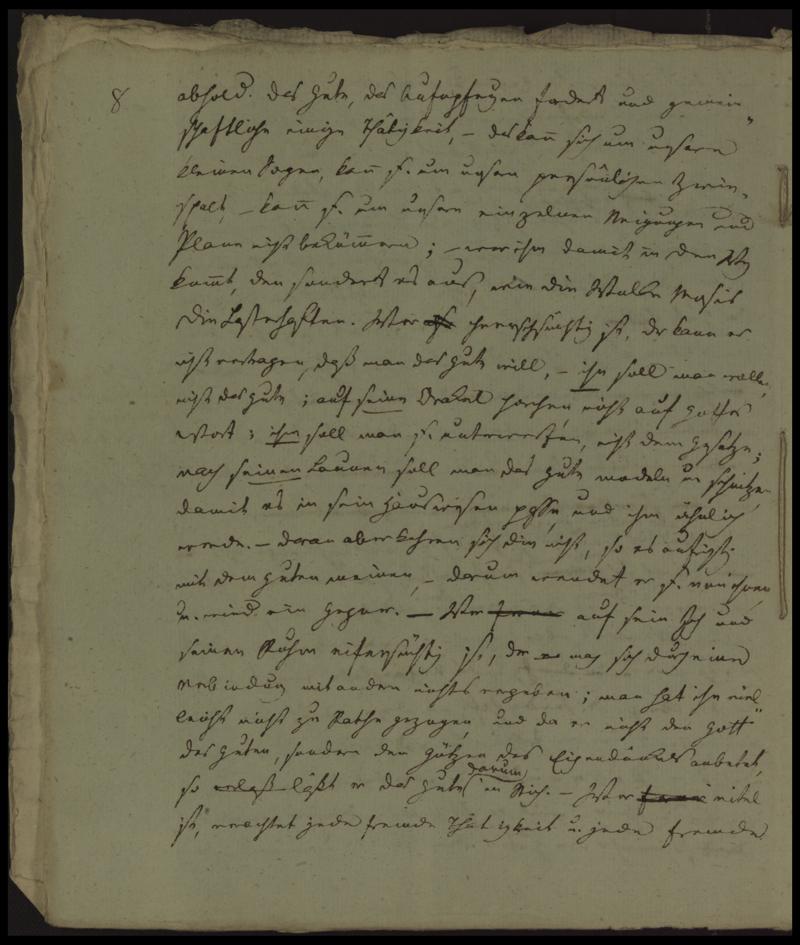 8
abhold. Das Gute, das Aufopferungen fordert und gemein„
schaftliche einige Thätigkeit, – das kann sich um unsere
kleinen Sorgen, kann s. um unsern persönlichen Zwie„
spalt, – kann s. um unsere einzelnen Neigungen und
Plane nicht bekümmern; – wer ihm damit in den Weg
kommt, den sondert es aus, wie die
die Lasterhaften. Wer herrschsüchtig ist, der kann es
nicht vertragen, daß man das Gute will, – ihn soll man wollen,
nicht das Gute; auf seine Orakel horchen, nicht auf Gottes
Wort; ihm soll man s. unterwerfen, nicht dem Gesetze;
nach seinen Launen soll man das Gute modeln u. schnitzen
damit es in sein Hauswesen passe und ihm ähnlich
werde. – daran aber kehren sich die nicht, so es aufrichtig
mit dem Guten meinen, – darum wendet er s. von ihnen
u. wird ein Gegner. – Wer auf sein Ich und
seinen Ruhm eifersüchtig ist, der mag sich durch eine
Verbindung mit andern nichts vergeben; man hat ihn viel
leicht nicht zu Rathe gezogen, und da er nicht den Gott
des Guten, sondern den Götzen des Eigendünkels anbetet,
so läßt er das Gute darum im Stich. – Wer eitel
ist, verachtet jede fremde Thätigkeit u. jede fremde